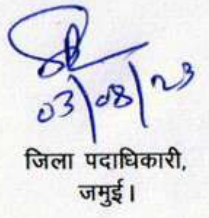 03/08/23
जिला पदाधिकारी,
जमुई।